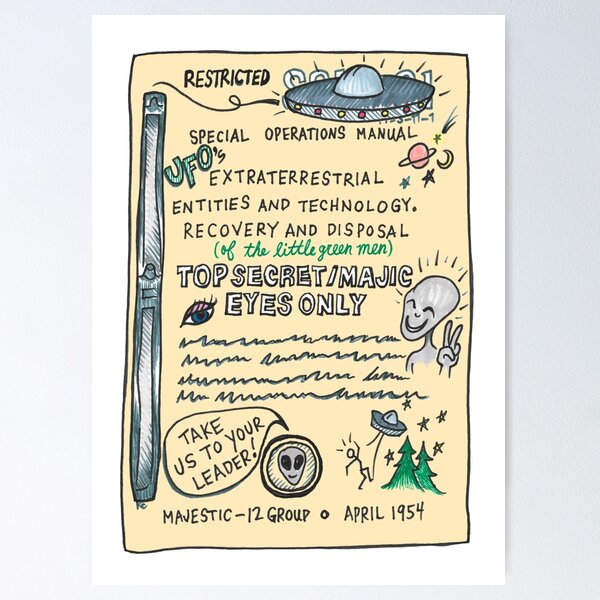 RESTRICTED
SPECIAL OPERATIONS MANUAL
UFO's
EXTRATERRESTRIAL
ENTITIES AND TECHNOLOGY.
RECOVERY AND DISPOSAL
(of the little green men)
TOP SECRET/MAJIC
EYES ONLY
TAKE
US TO YOUR
LEADER!
MAJESTIC-12 GROUP • APRIL 1954